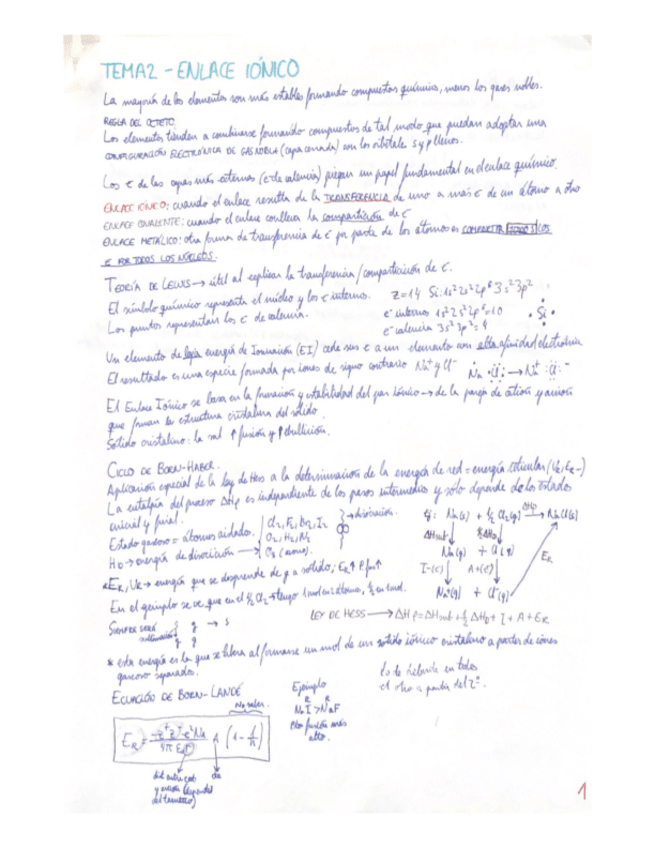 TEMA2 - ENLACE IÓNICO
La mayoría de los elementos son más estables formando compuestos químicos, menos los gases nobles.
REGLA DEL OCTETO
Los elementos tienden a combinarse formando compuestos de tal modo que puedan adoptar una
CONFIGURACIÓN ELECTRÓNICA DE GAS NOBLE (capa cerrada) con los orbitales s y p llenos.
Los e⁻ de las capas más externas (e⁻ de valencia) juegan un papel fundamental en el enlace químico.
ENLACE IÓNICO: cuando el enlace resulta de la TRANSFERENCIA de uno a más e⁻ de un átomo a otro
ENLACE COVALENTE: cuando el enlace conlleva la compartición de e⁻
ENLACE METÁLICO: otra forma de transferencia de e⁻ por parte de los átomos es COMPARTIR TODOS LOS
e⁻ POR TODOS LOS NÚCLEOS.
TEORÍA DE LEWIS → útil al explicar la transferencia/compartición de e⁻.
El símbolo químico representa el núcleo y los e⁻ internos. Z=14 Si: 1s² 2s² 2p⁶ 3s² 3p²
Los puntos representan los e⁻ de valencia. e⁻ internos 1s² 2s² 2p⁶ = 10 Si
e⁻ valencia 3s² 3p² = 4
Un elemento de baja energía de Ionización (EI) cede sus e⁻ a un elemento con alta afinidad electrónica
El resultado es una especie formada por iones de signo contrario Na⁺ y Cl⁻ Na· ·Cl: → Na⁺ :Cl:⁻
El Enlace Iónico se basa en la formación y estabilidad del par iónico → de la pareja de catión y anión
que forman la estructura cristalina del sólido.
Sólido cristalino: la sal ↑ fusión y ↑ ebullición.
CICLO DE BORN-HABER.
Aplicación especial de la ley de Hess a la determinación de la energía de red = energía reticular (U, ER -)
La entalpía del proceso ΔHf es independiente de los pasos intermedios y sólo depende de los estados
inicial y final.
Estado gaseoso = átomos aislados. Cl₂, F₂, Br₂, I₂ → disociación.
HD → energía de disociación → O₂, H₂, N₂
O₃ (ozono).
Ej: Na(s) + ½ Cl₂(g) → NaCl(s)
ΔHf
ΔHsub ½ΔHD
Na(g) + Cl(g)
I -(e⁻) A +(e⁻) ER
Na⁺(g) + Cl⁻(g)
* ER, U → energía que se desprende de g a sólido; ER↑ P.fus↑
En el ejemplo se ve que en el ½ Cl₂
SIEMPRE SERÁ s g → s
g g
LEY DE HESS → ΔHf = ΔHsub + ½ ΔHD + I + A + ER
* esta energía es la que se libera al formarse un mol de un sólido iónico cristalino a partir de iones
gaseoso separados.
ECUACIÓN DE BORN-LANDÉ
No saber.
ER = -z⁺z⁻e²NA / 4π E₀ r A (1 - 1/n)
Ejemplo
ER ER
NaI > NaF
Pto fusión más
alto.
1